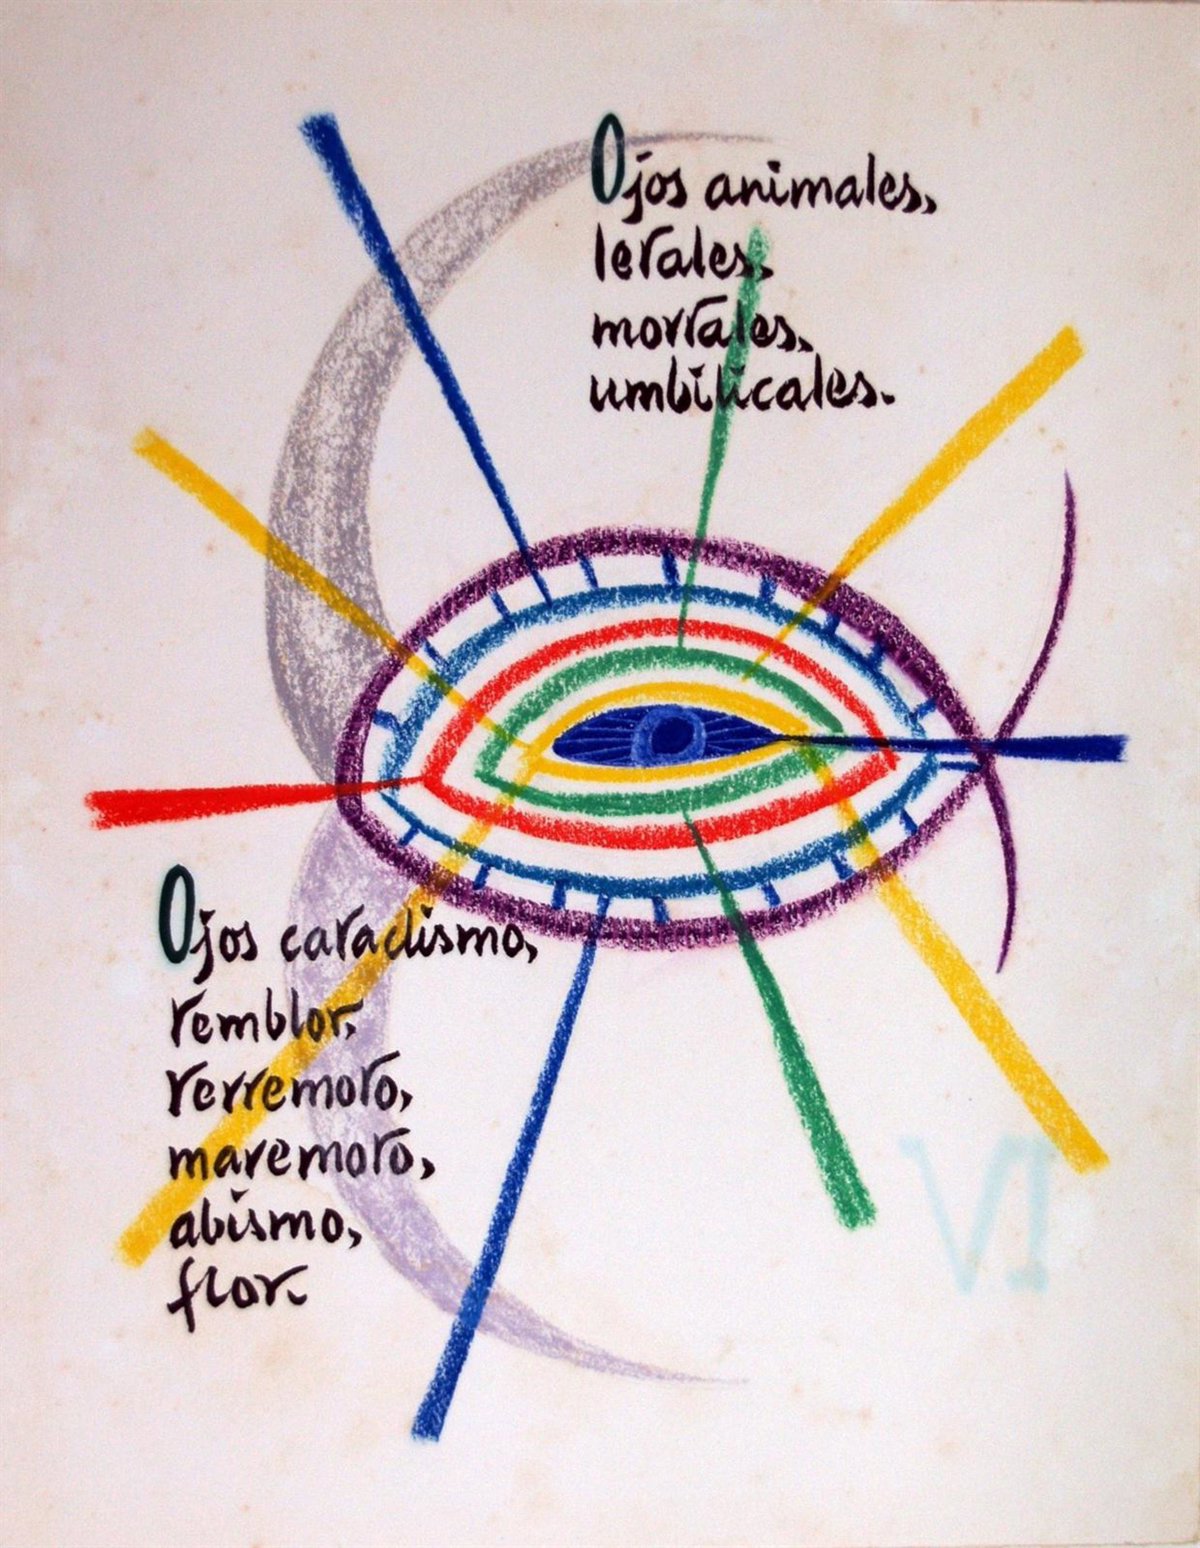 Ojos animales,
letales,
mortales,
umbilicales.
Ojos cataclismo,
temblor,
terremoto,
maremoto,
abismo,
flor.
VI